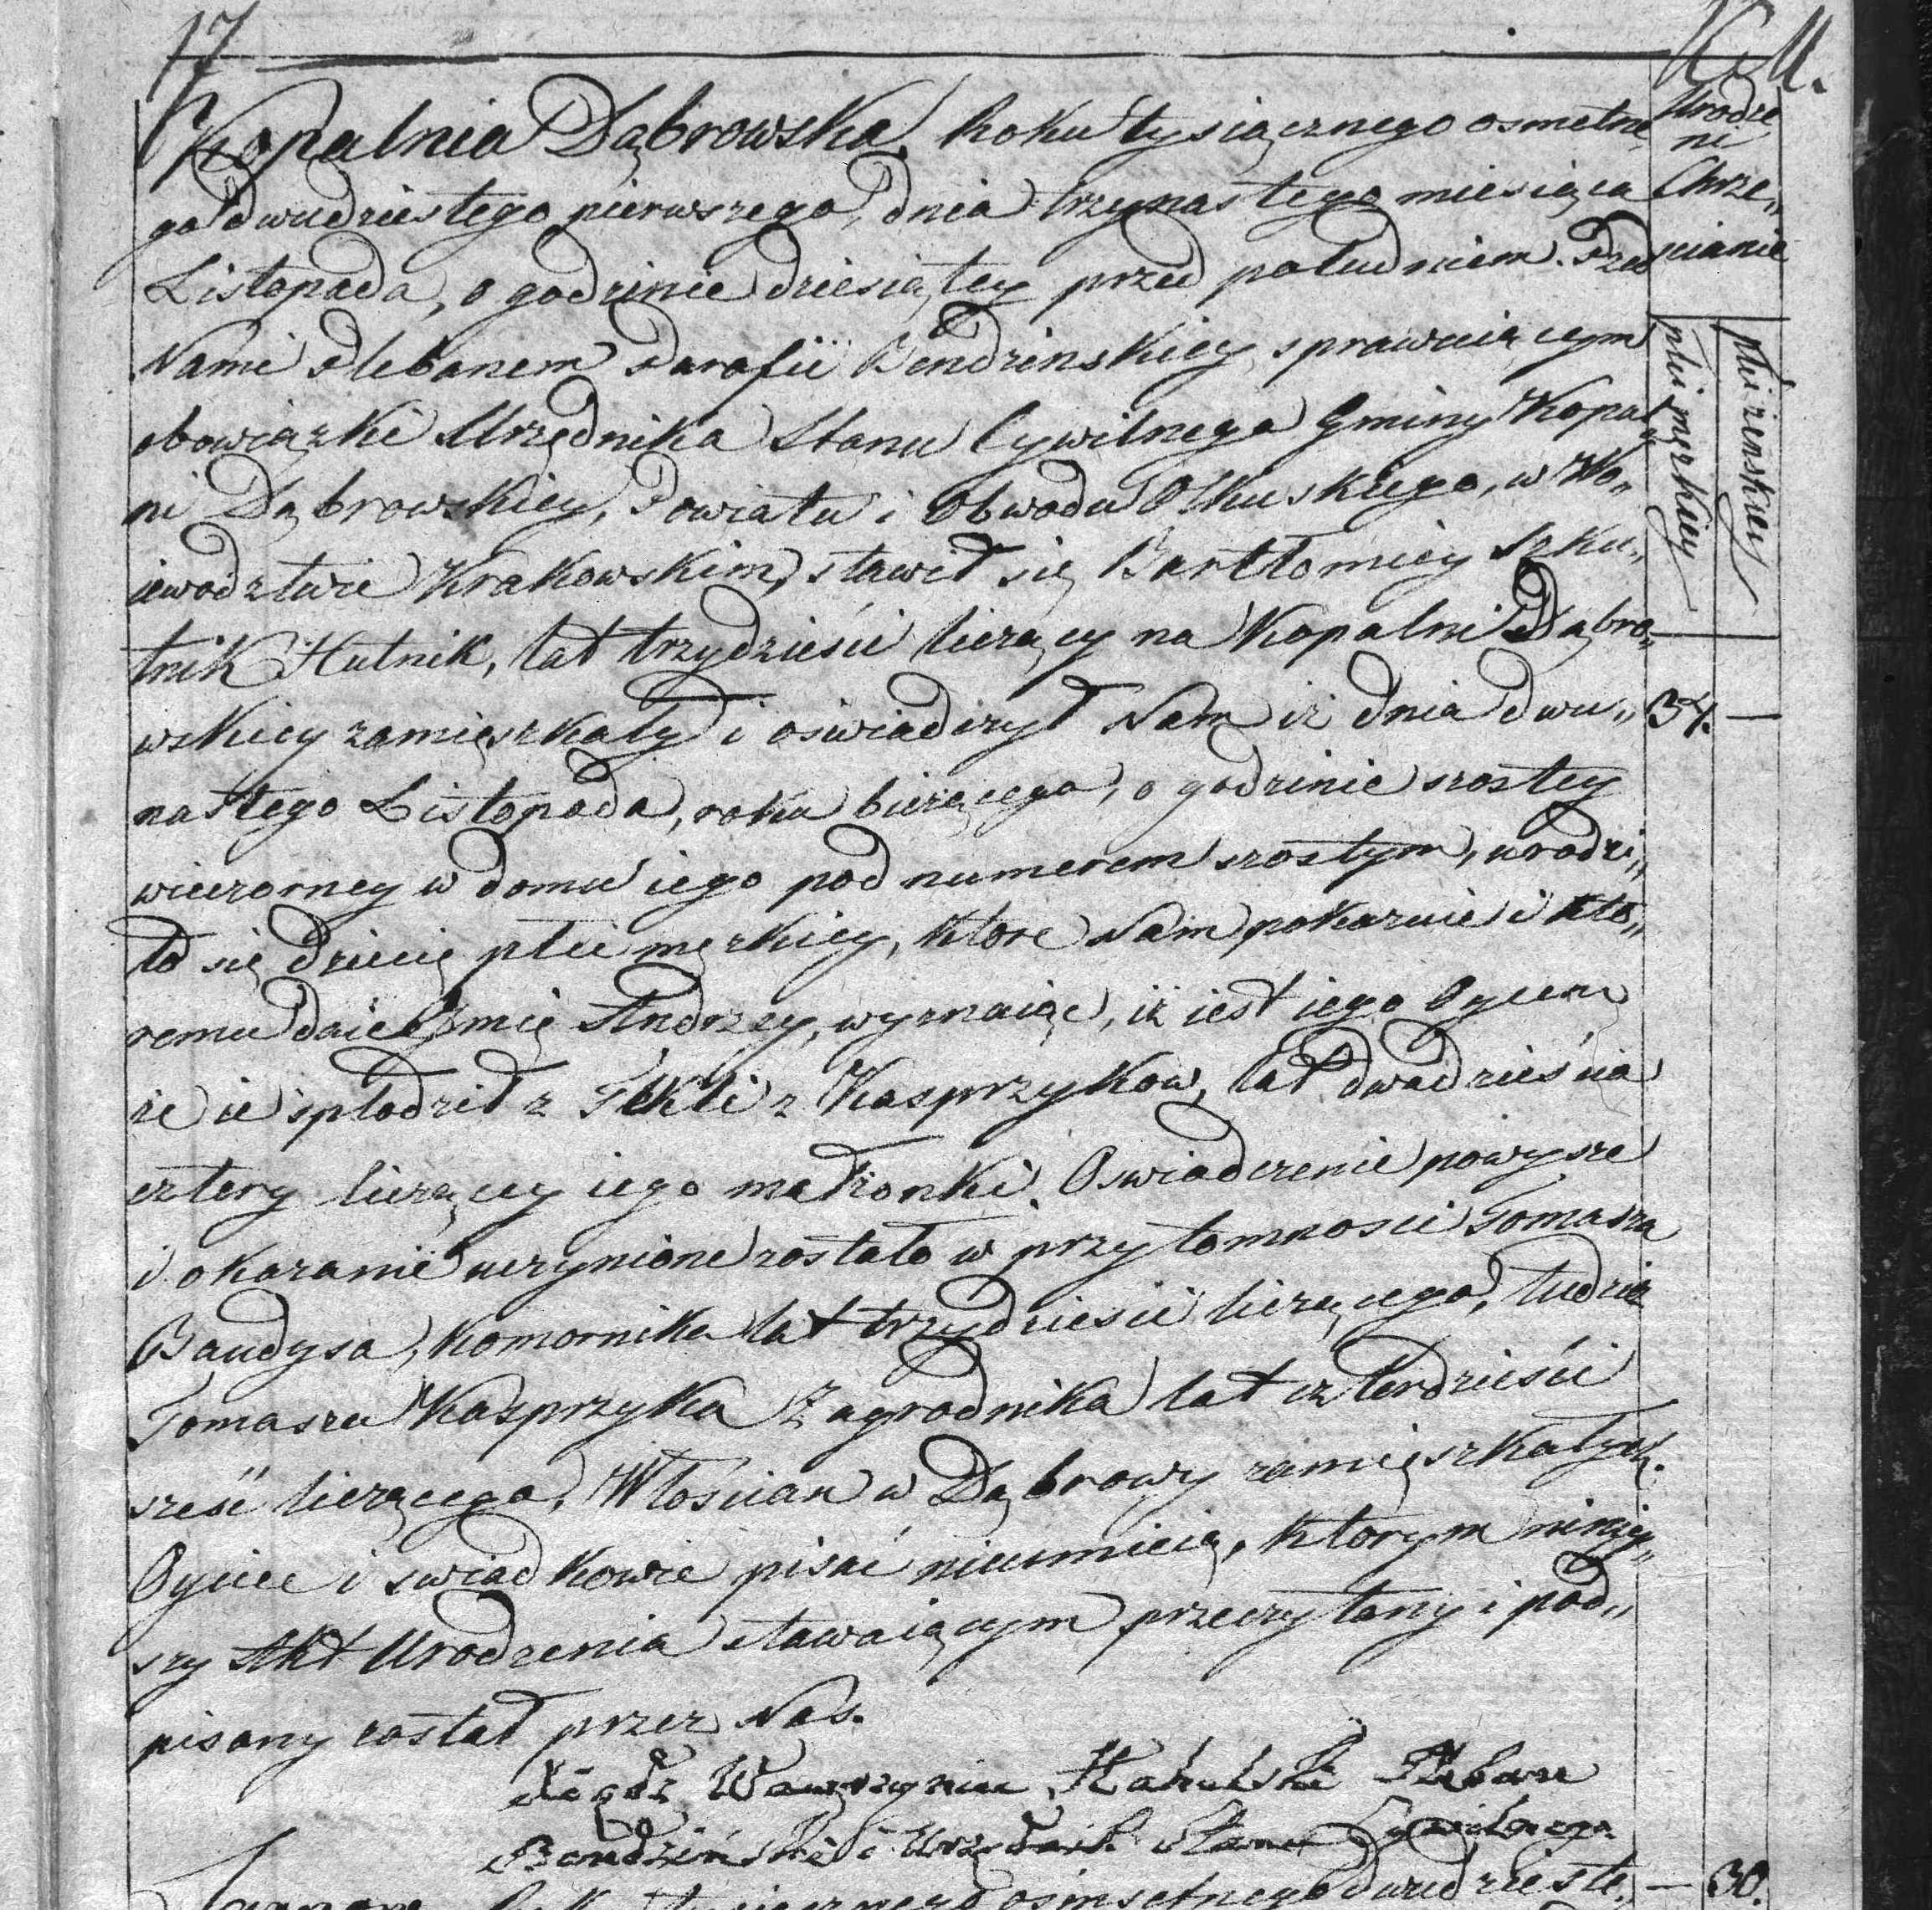 17
Kopalnia Dąbrowska. Roku tysiącznego osmetne,,
go dwudziestego pierwszego, dnia trzynastego miesiąca
Listopada, o godzinie dziesiątey przed południem. Przed
Nami Plebanem Parafii Bendzinskiey sprawuiącym
obowiązki Urzędnika Stanu Cywilnego Gminy Kopal,,
ni Dąbrowskiey, Powiatu i Obwodu Olkuskiego, w Wo,,
iewodztwie Krakowskim, stawił się Bartłomiey Szku,,
tnik Hutnik, lat trzydzieści liczący na Kopalni Dąbro,,
wskiey zamięszkały i oświadczył Nam iż dnia dwu,,
nastego Listopada, roku bieżącego, o godzinie szostey
wieczorney w domu iego pod numerem szostym, urodzi,,
ło się dziecię płci męzkiey, ktore Nam pokazuie i kto,,
remu daie Imię Andrzey, wyznaiąc, iż iest iego Oycem
że ie spłodził z Tekli z Kasprzykow, lat dwadzieścia
cztery liczącey iego małżonki. Oswiadczenie powysze
i okazanie uczynione zostało w przytomnosci Tomasza
Baudysa, Komornika lat trzydziescii liczącego, tudzież
Tomasza Kasprzyka Zagrodnika lat czterdzieści
sześć liczącego, Włościan w Dąbrowy zamięszkałych.
Oyciec i swiadkowie pisać nieumieią, ktorym niniey,,
szy Akt Urodzenia stawaiącym przeczytany i pod,,
pisany został przez Nas.
Xiądz Wawrzyniec Pleban
Bendziński i Urzędnik Stanu Cywilnego.
Urodze,,
ni
Chrze,,
scianie
płci męzkiey
płci żenskiey
34. —
roku tysiącznego osmsetnego dwudzieste,, — 30.